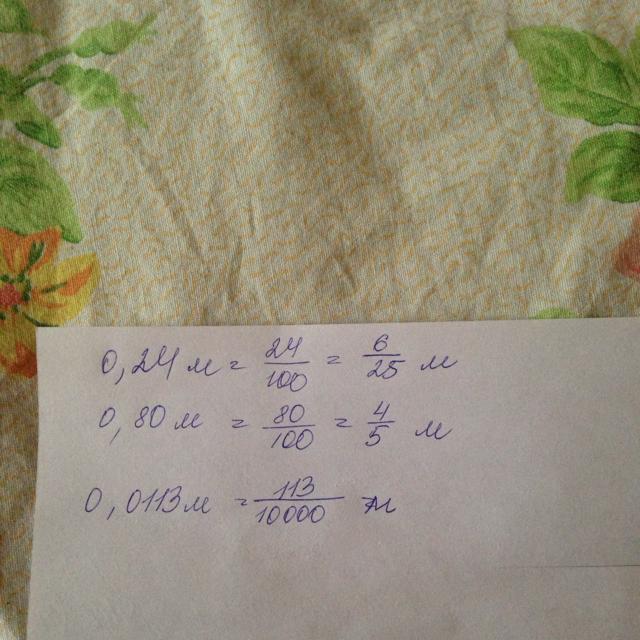 0,24 м = 24/100 = 6/25 м
0,80 м = 80/100 = 4/5 м
0,0113 м = 113/10000 м